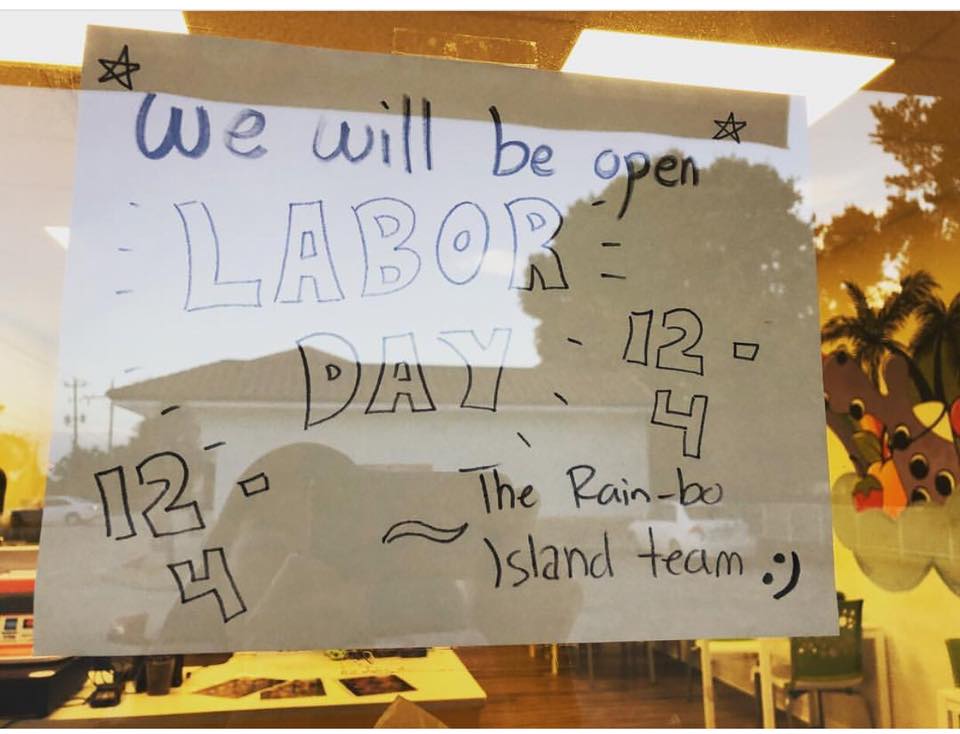 We will be open
LABOR
DAY
12-
4
12-
4
~ The Rain-bo
Island team :)